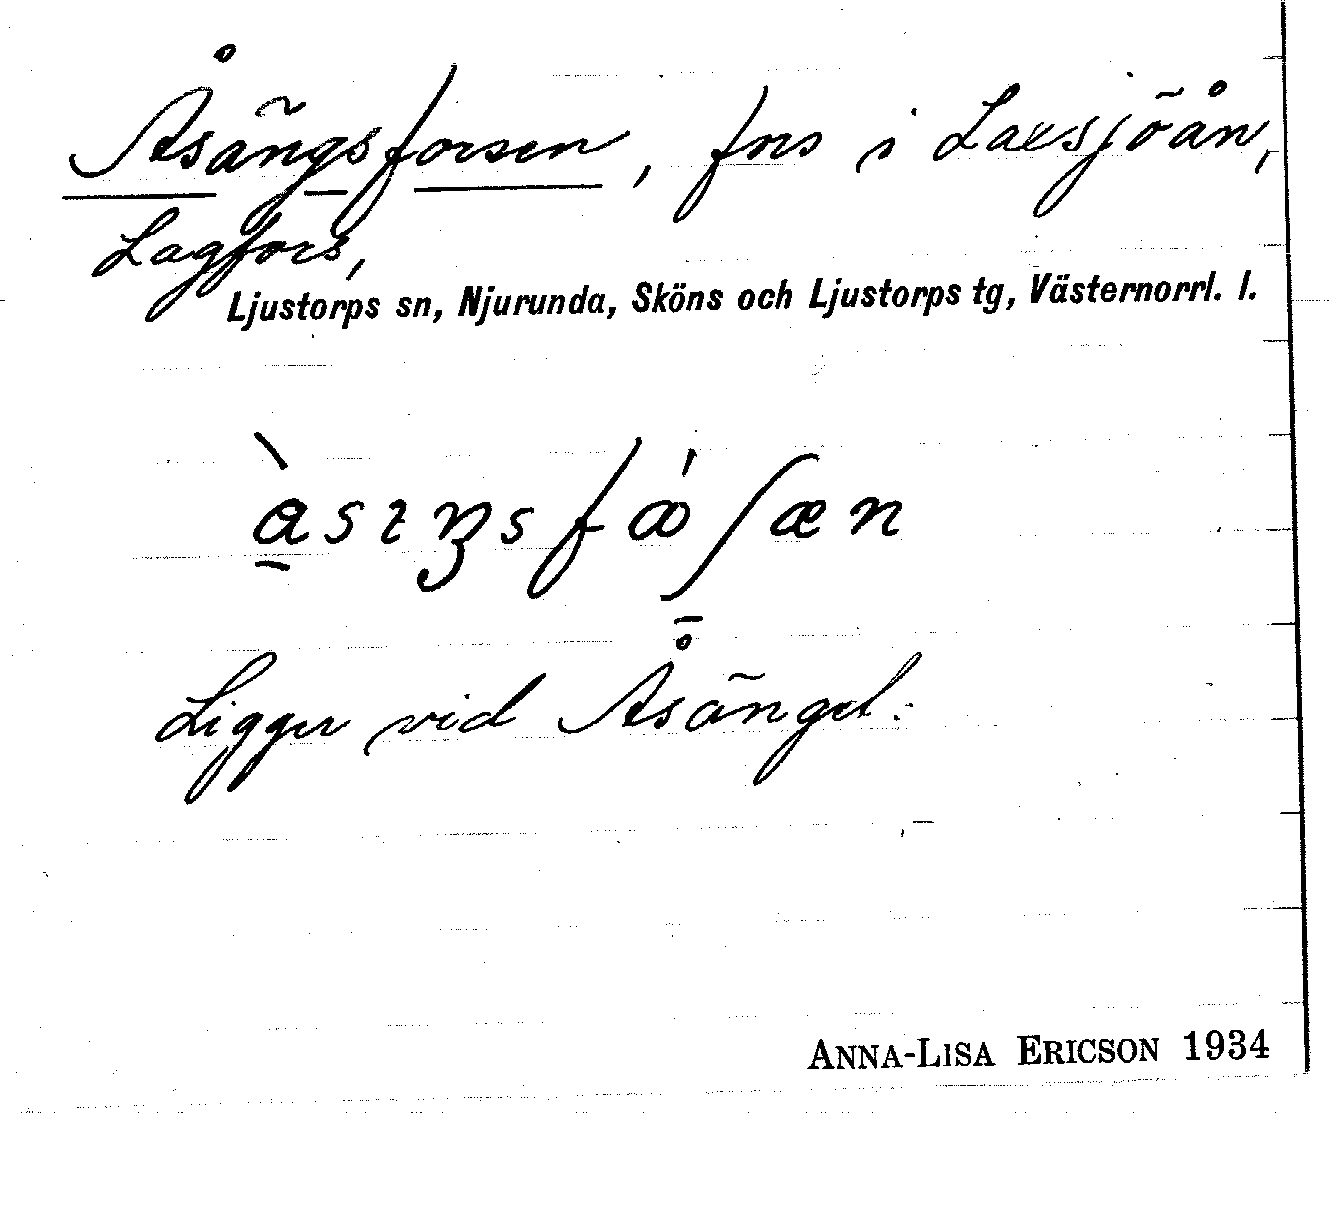 Åsängsforsen, fors i Laxsjöån,
Lagfors,
Ljustorps sn, Njurunda, Sköns och Ljustorps tg, Västernorrl. l.
Ligger vid Åsänget.
ANNA-LISA ERICSON 1934